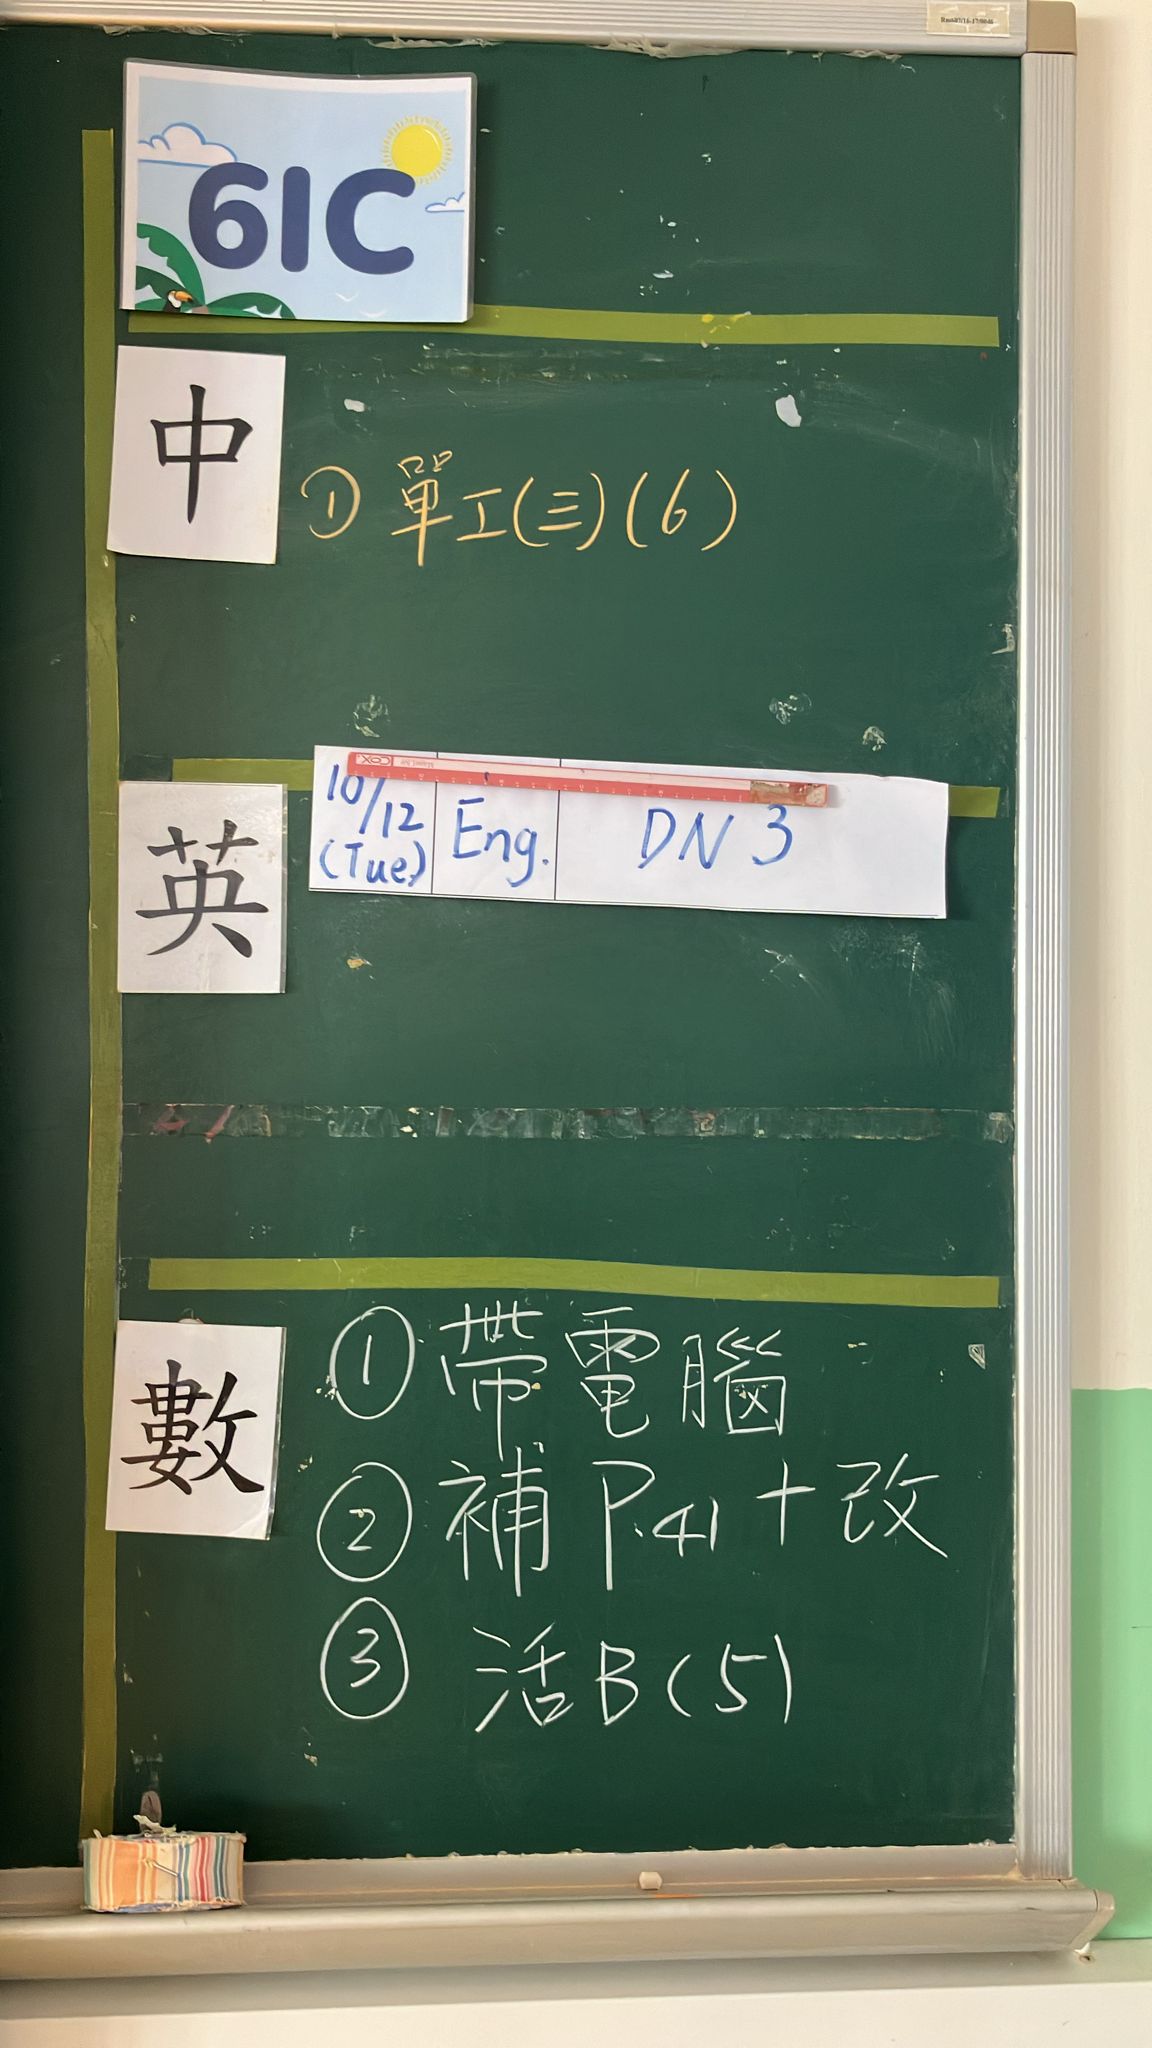 61C
中
① 單工(三)(6)
10/12 (Tue) Eng. DN 3
英
數
① 帶電腦
② 補 P.41 + 改
③ 活B(5)